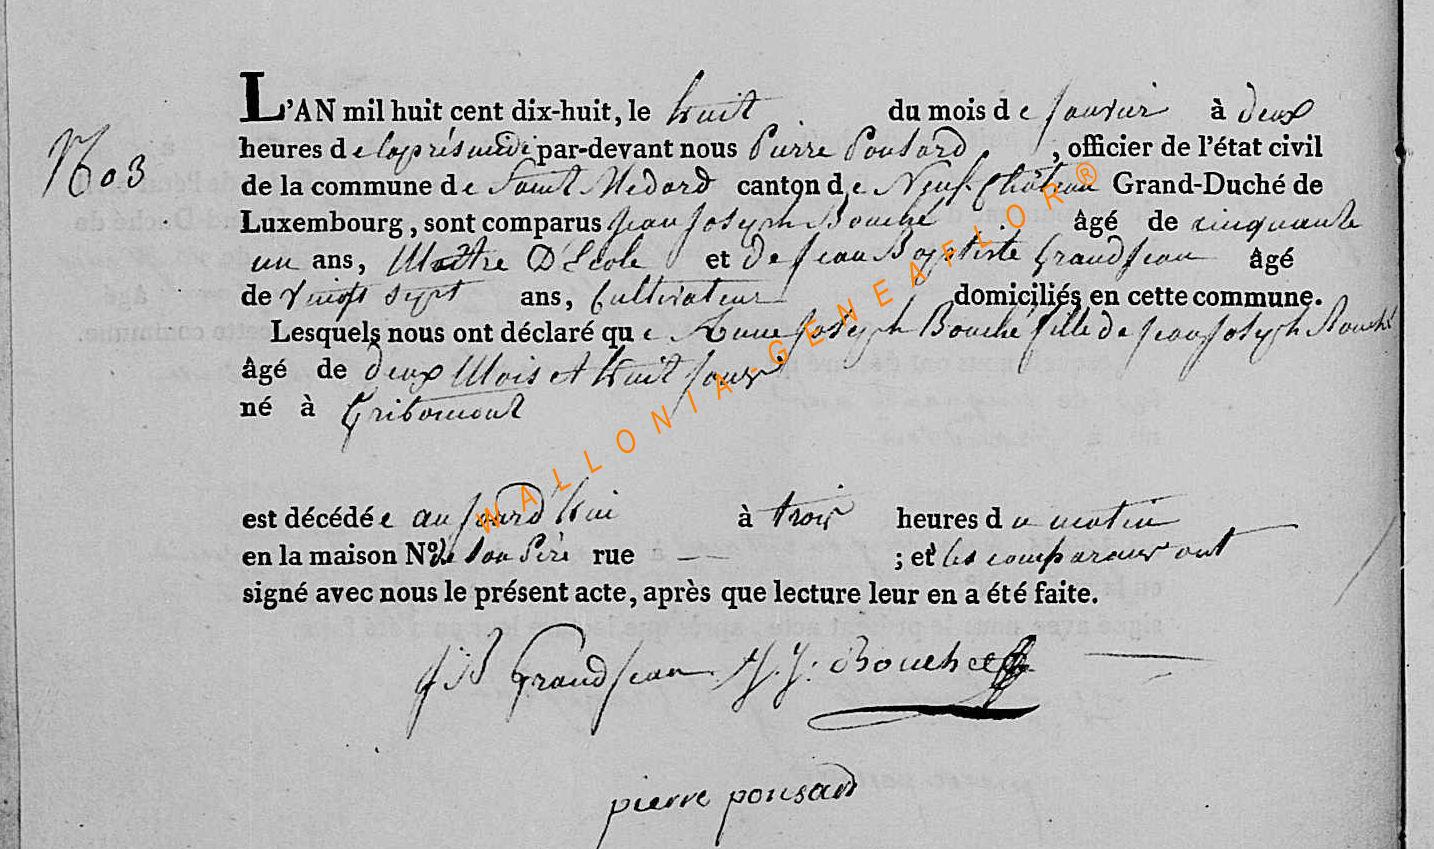 L'AN mil huit cent dix-huit, le huit du mois de Janvier à deux
No 3
heures de laprés midi par-devant nous Pierre Ponsard, officier de l'état civil
de la commune de Saint Medard canton de Neuf-Château Grand-Duché de
Luxembourg, sont comparus Jean Joseph Bouché âgé de cinquante
un ans, Maître D'Ecole et de Jean Baptiste Grandjean âgé
de vingt sept ans, Cultivateur domiciliés en cette commune.
Lesquels nous ont déclaré que Anne Joseph Bouché fille de Jean Joseph Bouché
âgé de deux Mois et huit Jours
né à Gribomont
est décédée aujourd'hui à trois heures du matin
en la maison No de son Pere rue — ; et les comparans ont
signé avec nous le présent acte, après que lecture leur en a été faite.
J B Grandjean J. J. Bouché
pierre ponsard
WALLONIA-GENEAFLOR®